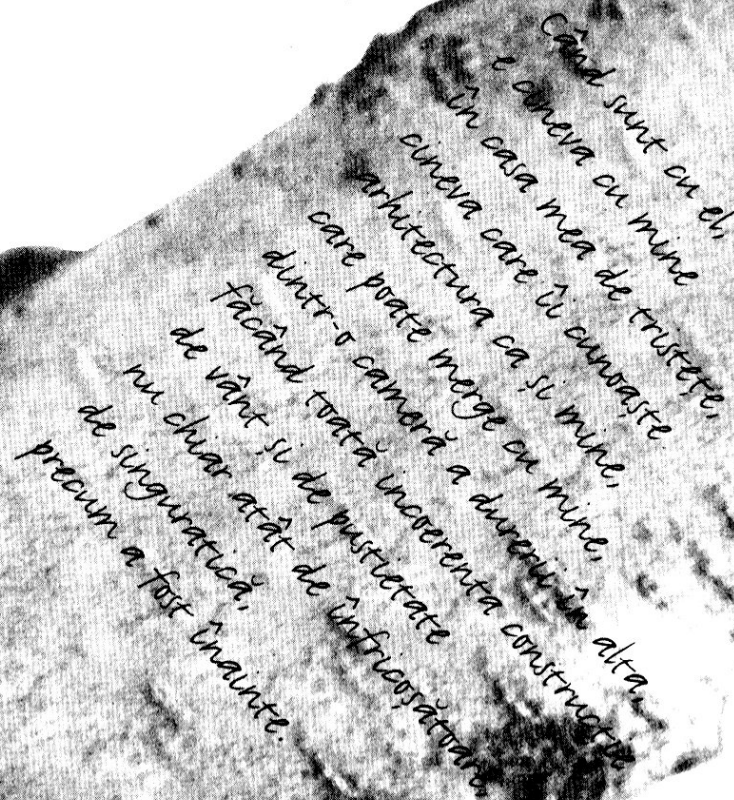 Când sunt cu el,
e cineva cu mine
în casa mea de tristețe,
cineva care îi cunoaște
arhitectura ca și mine,
care poate merge cu mine,
dintr-o cameră a durerii în alta,
făcând toată incoerenta construcție
de vânt și de pustietate
nu chiar atât de înfricoșătoare,
de singuratică,
precum a fost înainte.